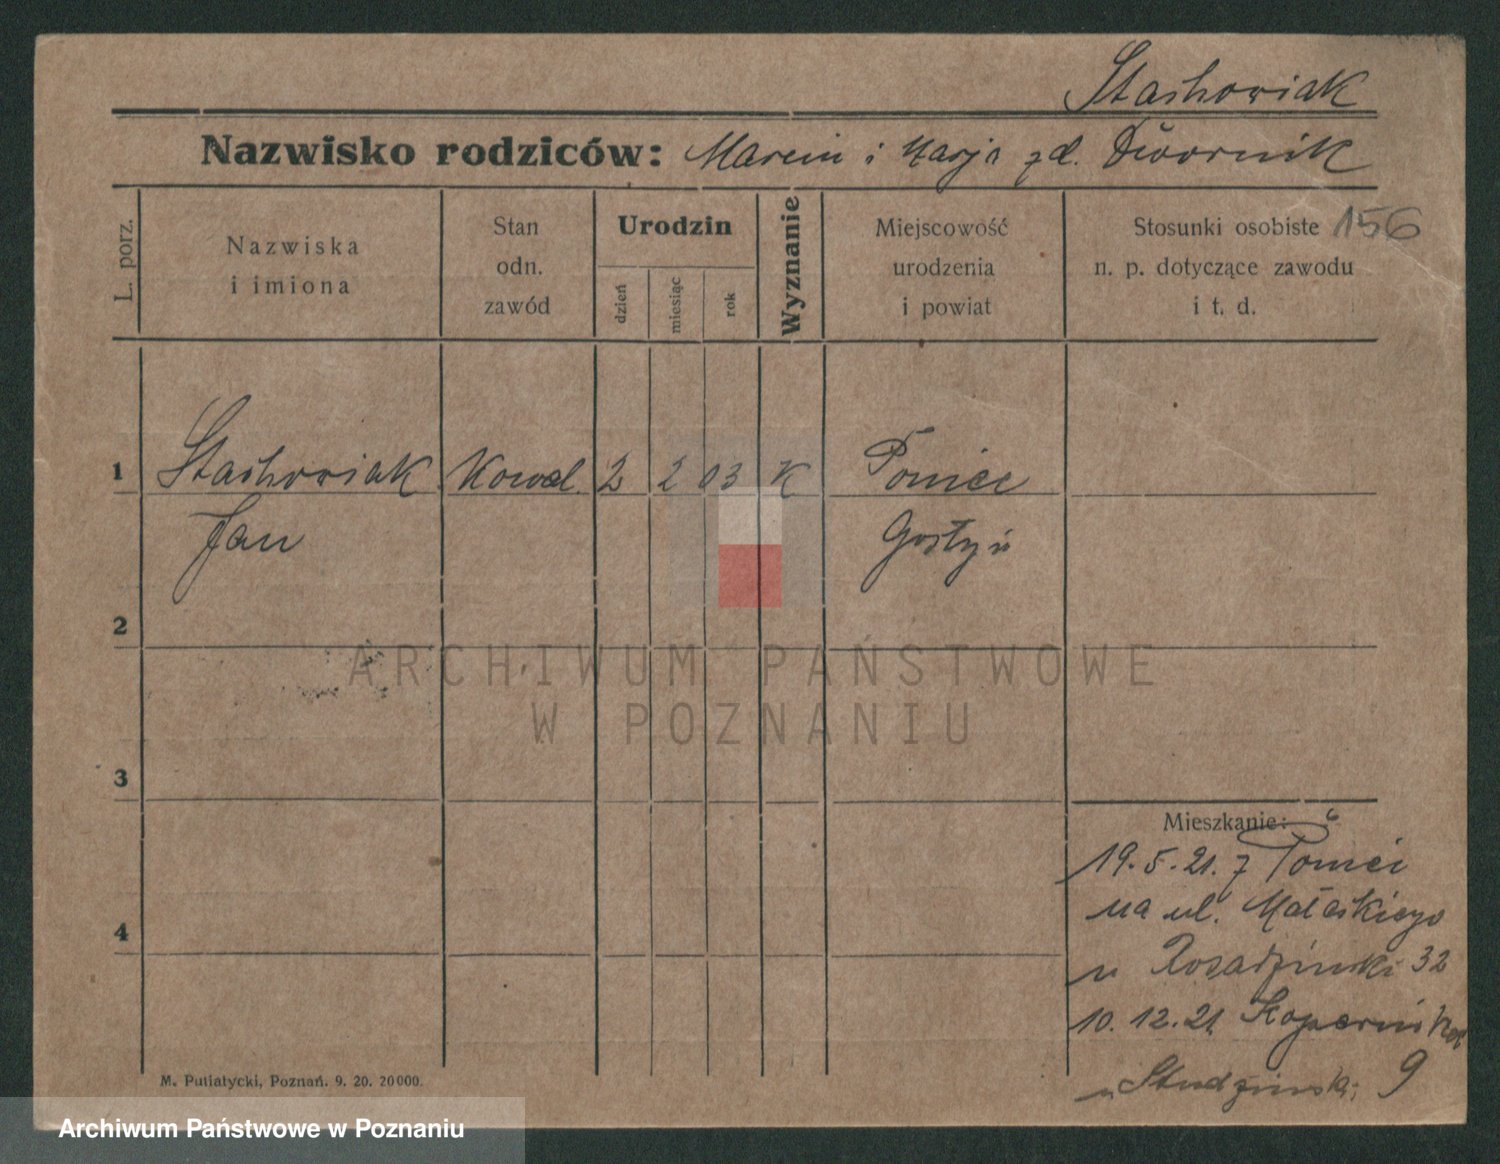 Stachowiak
Nazwisko rodziców: Marcin i Marja zd. Dwornik
L. porz.
Nazwiska
i imiona
Stan
odn.
zawód
Urodzin
dzień
miesiąc
rok
Wyznanie
Miejscowość
urodzenia
i powiat
Stosunki osobiste 156
n. p. dotyczące zawodu
i t. d.
1 Stachowiak Kowal 2 2 03 K Poniec
Jan Gostyń
2
3
4
Mieszkanie:
19.5.21. z Ponieć
na ul.
u 32
10.12.21 Kopernika
u Studziński 9
M. Putiatycki, Poznań. 9. 20. 20000.
ARCHIWUM PAŃSTWOWE
W POZNANIU
Archiwum Państwowe w Poznaniu